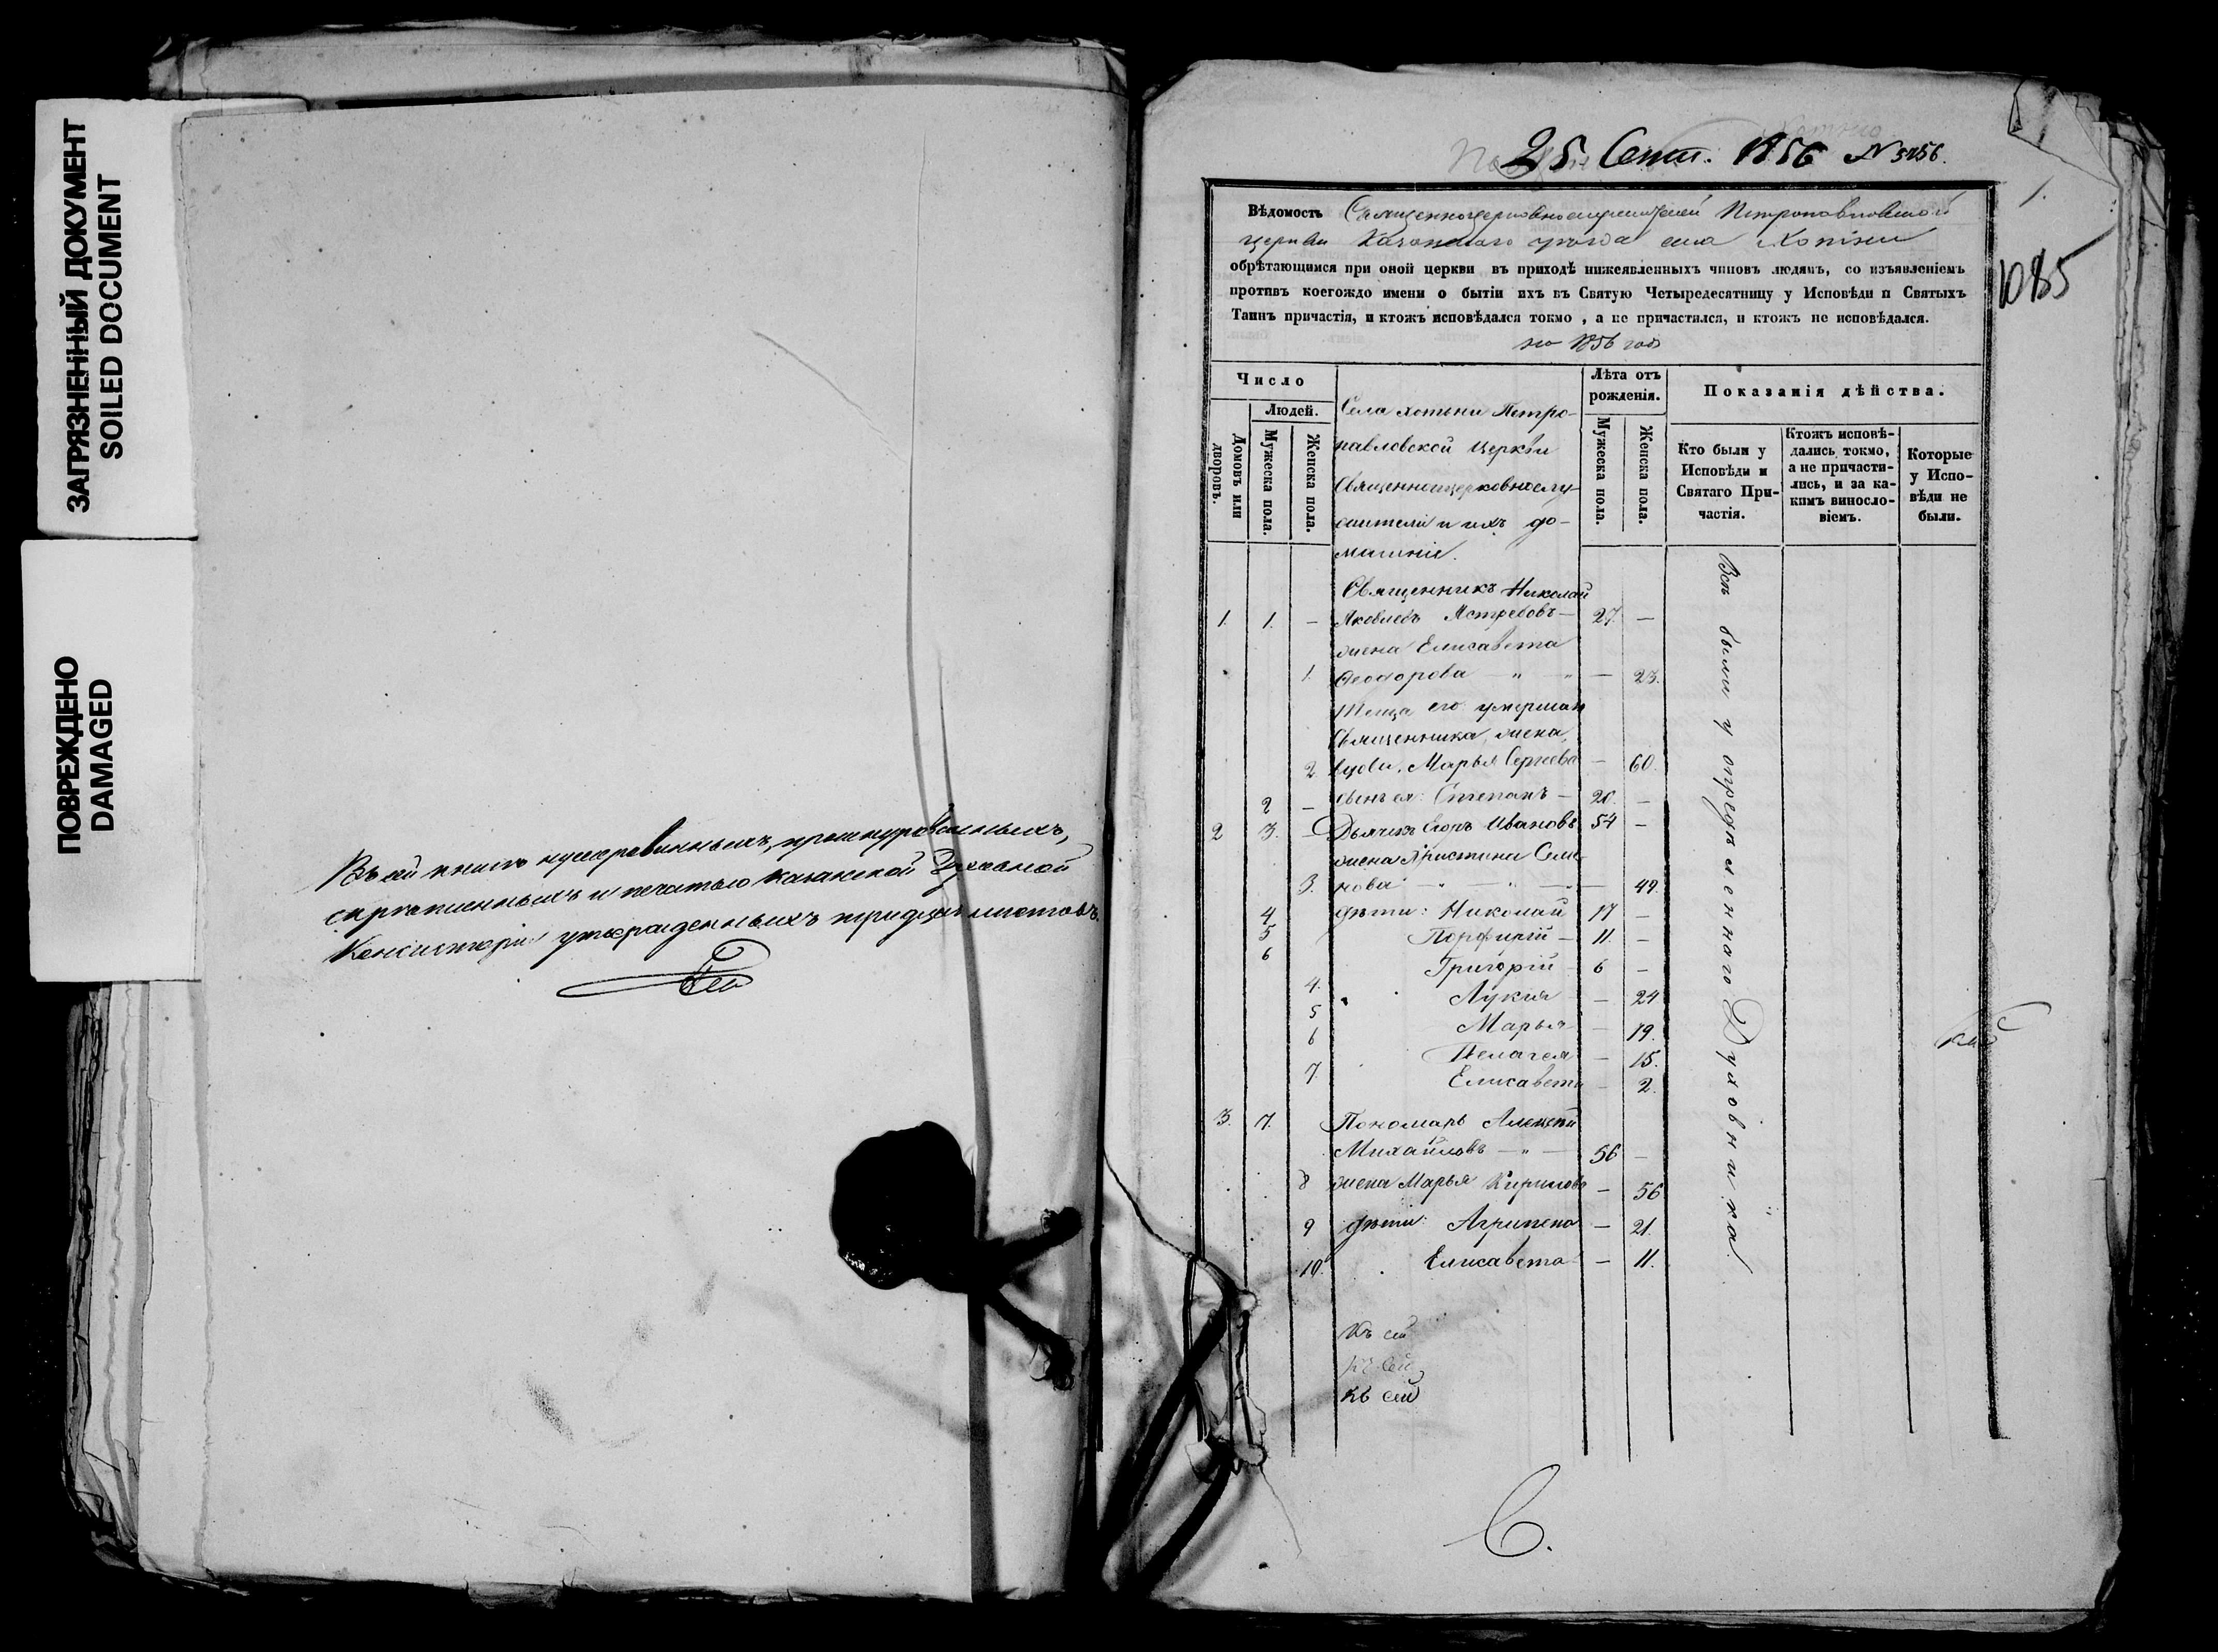 ЗАГРЯЗНЕННЫЙ ДОКУМЕНТ
SOILED DOCUMENT
ПОВРЕЖДЕНО
DAMAGED
Въ сей книгѣ нумерованныхъ, прошнурованныхъ,
скрѣпленныхъ и печатью Казанской Духовной
Консисторіи утвержденныхъ тридцать листовъ.
25 Сент. 1856 № 5756.
1.
1085
Вѣдомость Священноцерковнослужителей Петропавловской
церкви Казанскаго уѣзда села Хотни
обрѣтающимся при оной церкви въ приходѣ нижеявленныхъ чиновъ людямъ, со изъявленіемъ
противъ коегождо имени о бытіи ихъ въ Святую Четыредесятницу у Исповѣди и Святыхъ
Таинъ причастія, и ктожъ исповѣдался токмо, а не причастился, и ктожъ не исповѣдался.
на 1856 годъ
Число
Людей.
Домовъ или дворовъ.
Мужеска пола.
Женска пола.
Села Хотни Петро-
павловской церкви
Священноцерковнослу-
жители и ихъ до-
машніе.
Лѣта отъ рожденія.
Мужеска пола.
Женска пола.
Показанія дѣйства.
Кто были у Исповѣди и Святаго При-частія.
Ктожъ исповѣ-дались токмо, а не причасти-лись, и за ка-кимъ винosло-віемъ.
Которые у Испо-вѣди не были.
Священникъ Николай
1. 1. — Яковлевъ Ястребовъ — 27. —
жена Елисавета
1. Ѳеодорова — " — " — 23.
Теща его умершаго
Священника жена,
2. вдова, Марья Сергѣева — 60.
2 — сынъ ея: Степанъ — 20. —
2 3. — Дьячекъ Егоръ Ивановъ 54 —
жена Христина Семе-
3. нова — " — " — 49.
4 дѣти: Николай 17 —
5 Порфирій — 11. —
6 Григорій 6 —
4. Лукия — 24
5 Марья — 19.
6 Пелагея — 15.
7. Елисавета — 2.
3. 7. Пономарь Алексѣй
Михайловъ — " — 56 —
8 жена Марья Кирилова — 56
9 дѣти: Агрипена — 21.
10. Елисавета — 11.
Всѣ были у опредѣленнаго Духовника.
Къ сей
Къ сей
Къ сей
С.